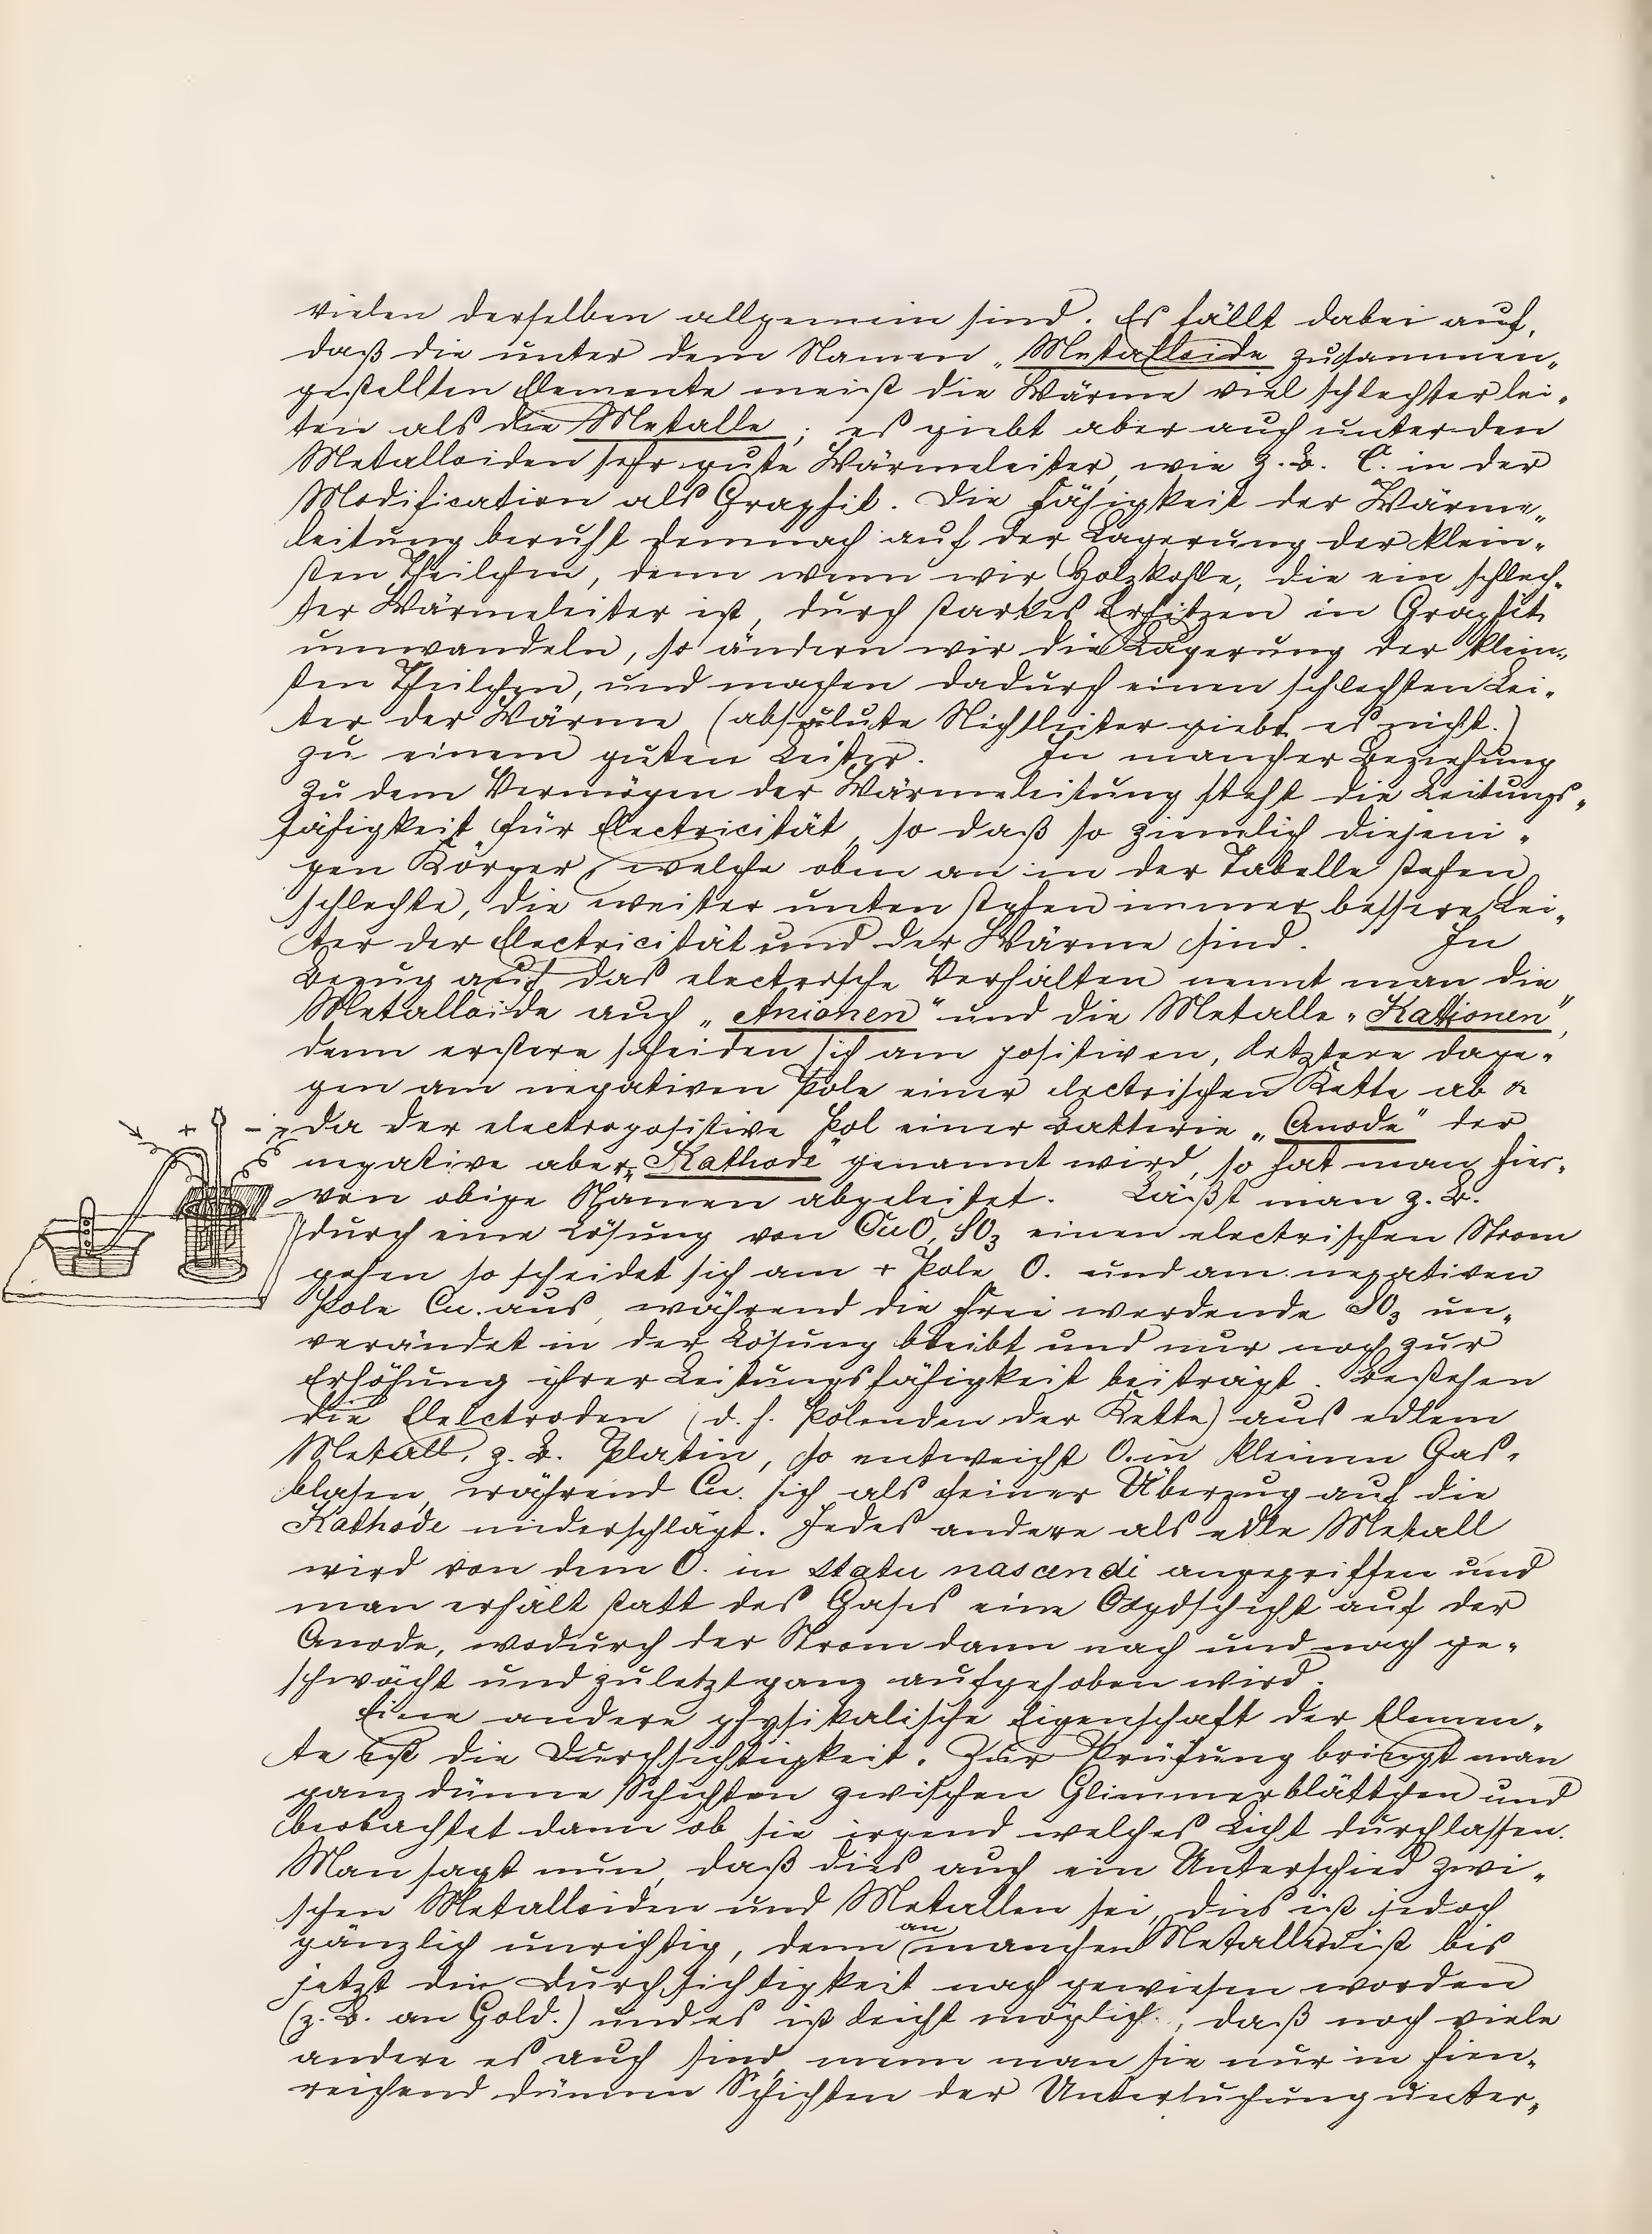 vielen derselben allgemein sind. Es fällt dabei auf,
daß die unter dem Namen „Metalloide zusammen-
gestellten Elemente meist die Wärme viel schlechter lei-
ten als die Metalle; es giebt aber auch unter den
Metalloiden sehr gute Wärmeleiter, wie z. B. C. in der
Modification als Graphit. Die Fähigkeit der Wärme-
leitung beruht demnach auf der Lagerung der klein-
sten Theilchen, denn wenn wir Holzkohle, die ein schlech-
ter Wärmeleiter ist, durch starkes Erhitzen in Graphit
umwandeln, so ändern wir die Lagerung der klein-
sten Theilchen, und machen dadurch einen schlechten Lei-
ter der Wärme (absolute Nichtleiter giebt es nicht.)
zu einem guten Leiter. In mancher Beziehung
zu dem Vermögen der Wärmeleitung steht die Leitungs-
fähigkeit für Electricität, so daß so ziemlich diejeni-
gen Körper, welche oben an in der Tabelle stehen
schlechte, die weiter unten stehen immer bessere Lei-
ter der Electricität und der Wärme sind. In
Bezug auf das electrische Verhalten nennt man die
Metalloide auch „Anionen" und die Metalle „Kationen",
denn erstere scheiden sich am positiven, letztere dage-
gen am negativen Pole einer electrischen Kette ab &
da der electropositive Pol einer Batterie „Anode" der
negative aber „Kathode" genannt wird, so hat man hier-
von obige Namen abgeleitet. Läßt man z. B.
durch eine Lösung von CuO, SO3 einen electrischen Strom
gehen so scheidet sich am + Pole O. und am negativen
Pole Cu. aus, während die frei werdende SO3 un-
verändet in der Lösung bleibt und nur noch zur
Erhöhung ihrer Leitungsfähigkeit beiträgt. Bestehen
die Elelctroden (d. h. Polenden der Kette) aus edlem
Metall, z. B. Platin, so entweicht O. in kleinen Gas-
blasen, während Cu. sich als feiner Überzug auf die
Kathode niderschlägt. Jedes andere als edle Metall
wird von dem O. in statu nascendi angegriffen und
man erhält statt des Gases eine Oxydschicht auf der
Anode, wodurch der Strom dann nach und nach ge-
schwächt und zuletzt ganz aufgehoben wird.
Eine andere physikalische Eigenschaft der Elemen-
te ist die Durchsichtigkeit. Zur Prüfung bringt man
ganz dünne Schichten zwischen Glimmerblättchen und
beobachtet dann ob sie irgend welches Licht durchlassen.
Man sagt nun, daß dies auch ein Unterschied zwi-
schen Metalloiden und Metallen sei, dies ist jedoch
gänzlich unrichtig, denn an manchen Metallen ist bis
jetzt die Durchsichtigkeit nachgewiesen worden
(z. B. an Gold.) und es ist leicht möglich, daß noch viele
andere es auch sind, wenn man sie nur in hien-
reichend dünnen Schichten der Untersuchung unter-
+ -